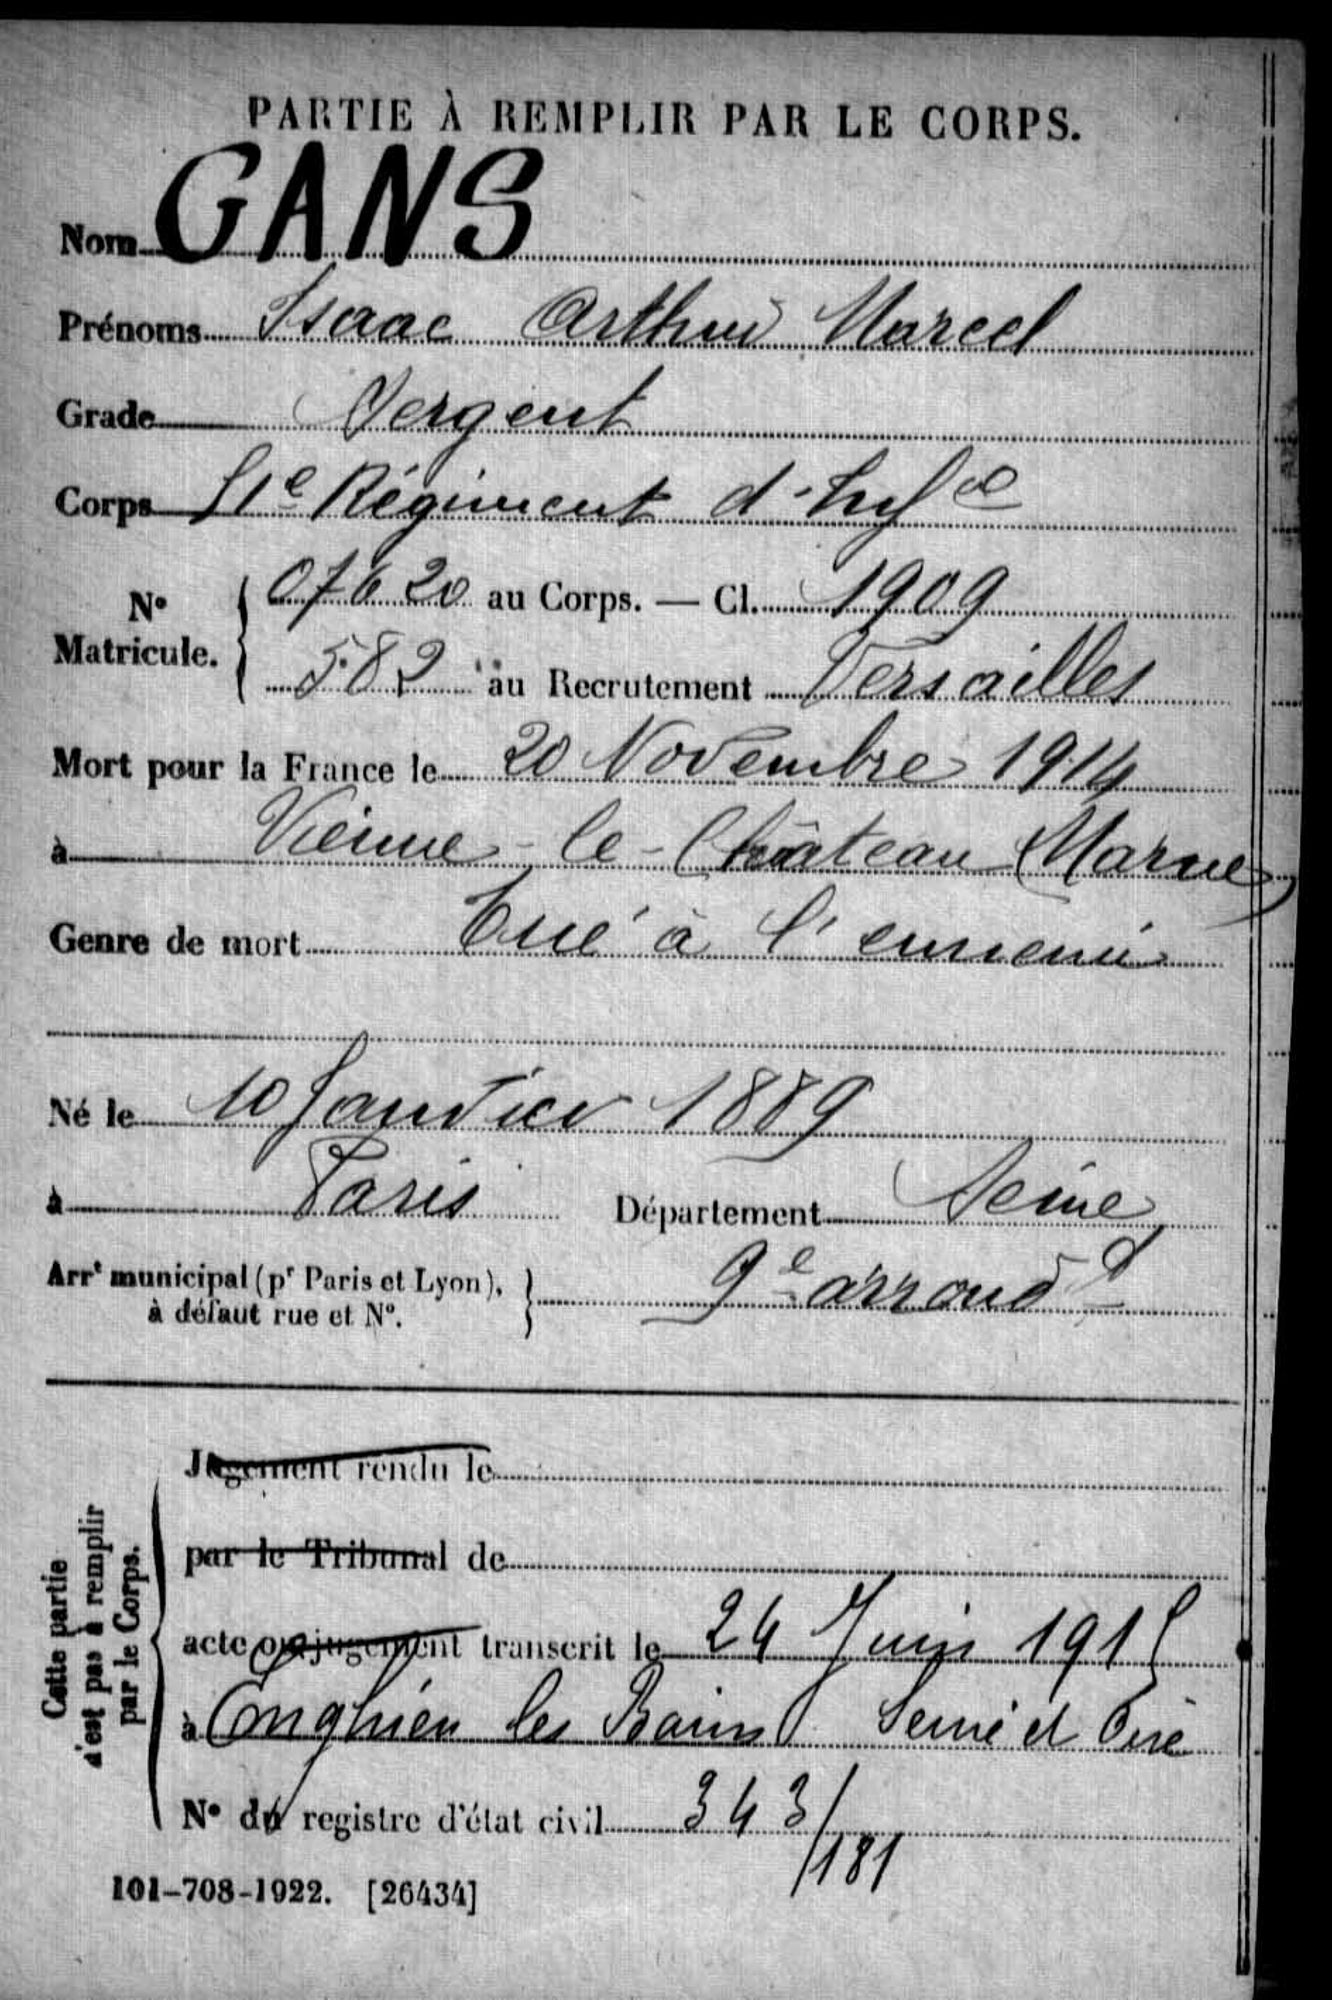 PARTIE À REMPLIR PAR LE CORPS.
Nom GANS
Prénoms Isaac Arthur Marcel
Grade Sergent
Corps 51e Régiment d'Infie
No Matricule. { 07620 au Corps. — Cl. 1909
582 au Recrutement Versailles
Mort pour la France le 20 Novembre 1914
à Vienne-le-Château (Marne)
Genre de mort Tué à l'ennemi
Né le 10 Janvier 1889
à Paris Département Seine
Arrt municipal (pr Paris et Lyon), } 9e arrondt
à défaut rue et No.
Cette partie
n'est pas à remplir
par le Corps.
Jugement rendu le
par le Tribunal de
acte ou jugement transcrit le 24 Juin 1915
à Enghien les Bains Seine et Oise
No du registre d'état civil 343/181
101-708-1922. [26434]